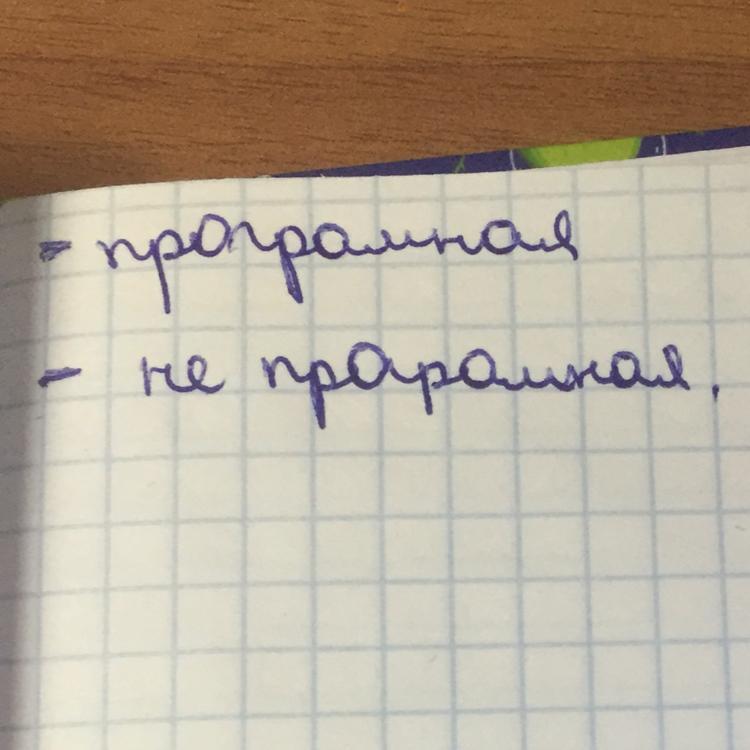 - програмная
- не програмная.